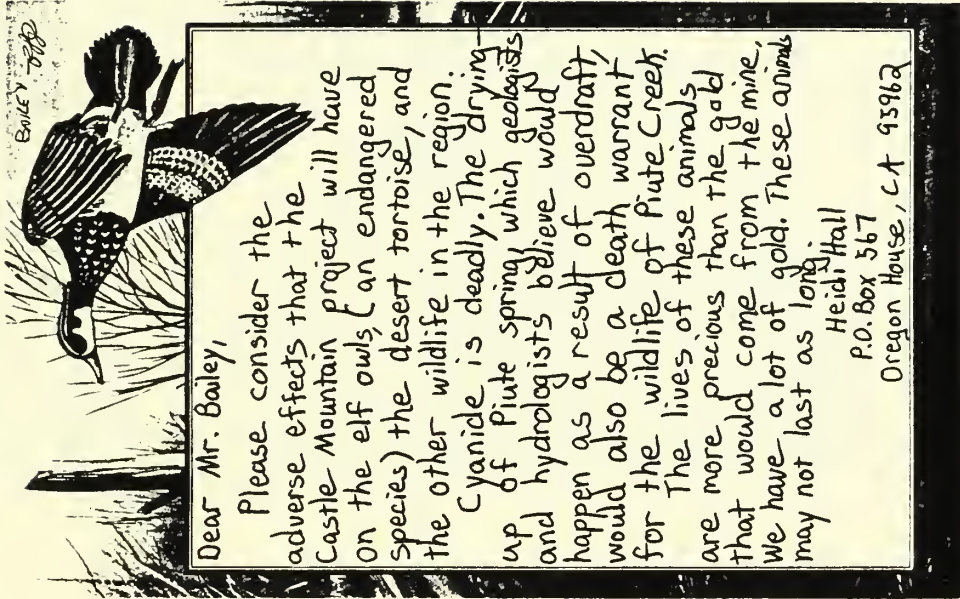 Dear Mr. Bailey,
Please consider the
adverse effects that the
Castle Mountain project will have
on the elf owls, (an endangered
species) the desert tortoise, and
the other wildlife in the region.
Cyanide is deadly. The drying
up of Piute spring, which geologists
and hydrologists believe would
happen as a result of overdraft,
would also be a death warrant,
for the wildlife of Piute Creek.
The lives of these animals
are more precious than the gold
that would come from the mine,
We have a lot of gold. These animals
may not last as long.
Heidi Hall
P.O. Box 567
Oregon House, CA 95962